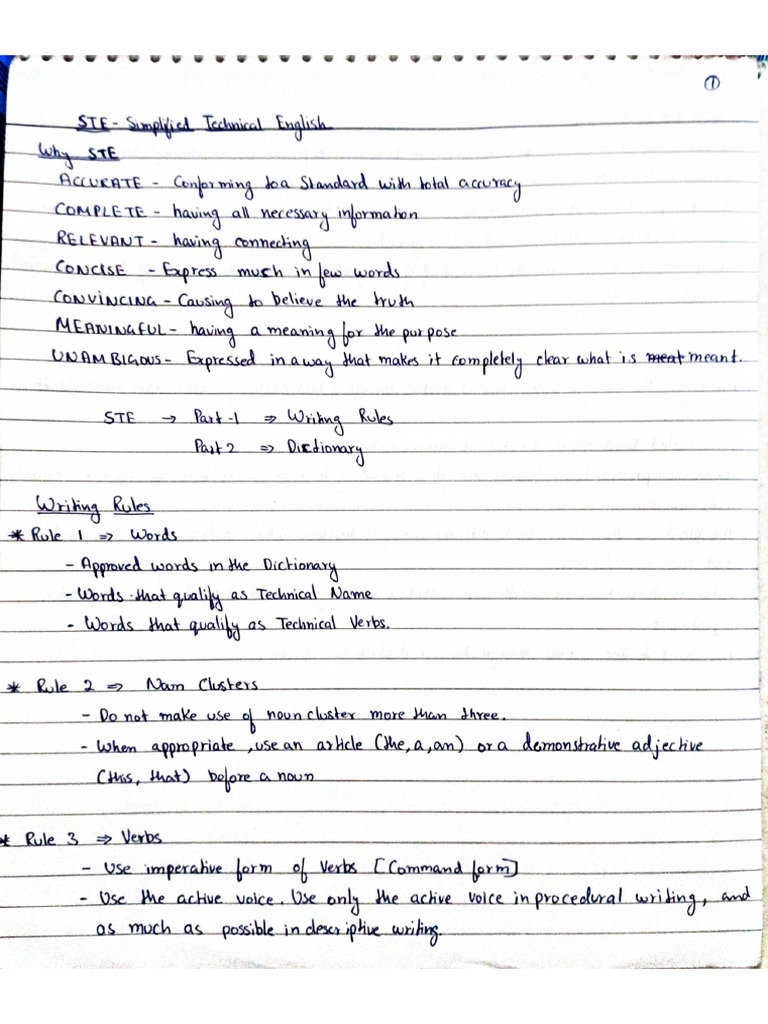 ①
STE - Simplified Technical English
Why STE
ACCURATE - Conforming to a Standard with total accuracy
COMPLETE - having all necessary information
RELEVANT - having connecting
CONCISE - Express much in few words
CONVINCING - Causing to believe the truth
MEANINGFUL - having a meaning for the purpose
UNAMBIGOUS - Expressed in a way that makes it completely clear what is meat meant.
STE → Part-1 ⇒ Writing Rules
Part 2 ⇒ Dictionary
Writing Rules
* Rule 1 ⇒ Words
- Approved words in the Dictionary
- Words that qualify as Technical Name
- Words that qualify as Technical Verbs.
* Rule 2 ⇒ Nam Clusters
- Do not make use of noun cluster more than three.
- When appropriate, use an article (the, a, an) or a demonstrative adjective
(this, that) before a noun
* Rule 3 ⇒ Verbs
- Use imperative form of Verbs [Command form]
- Use the active voice. Use only the active voice in procedural writing, and
as much as possible in descriptive writing.